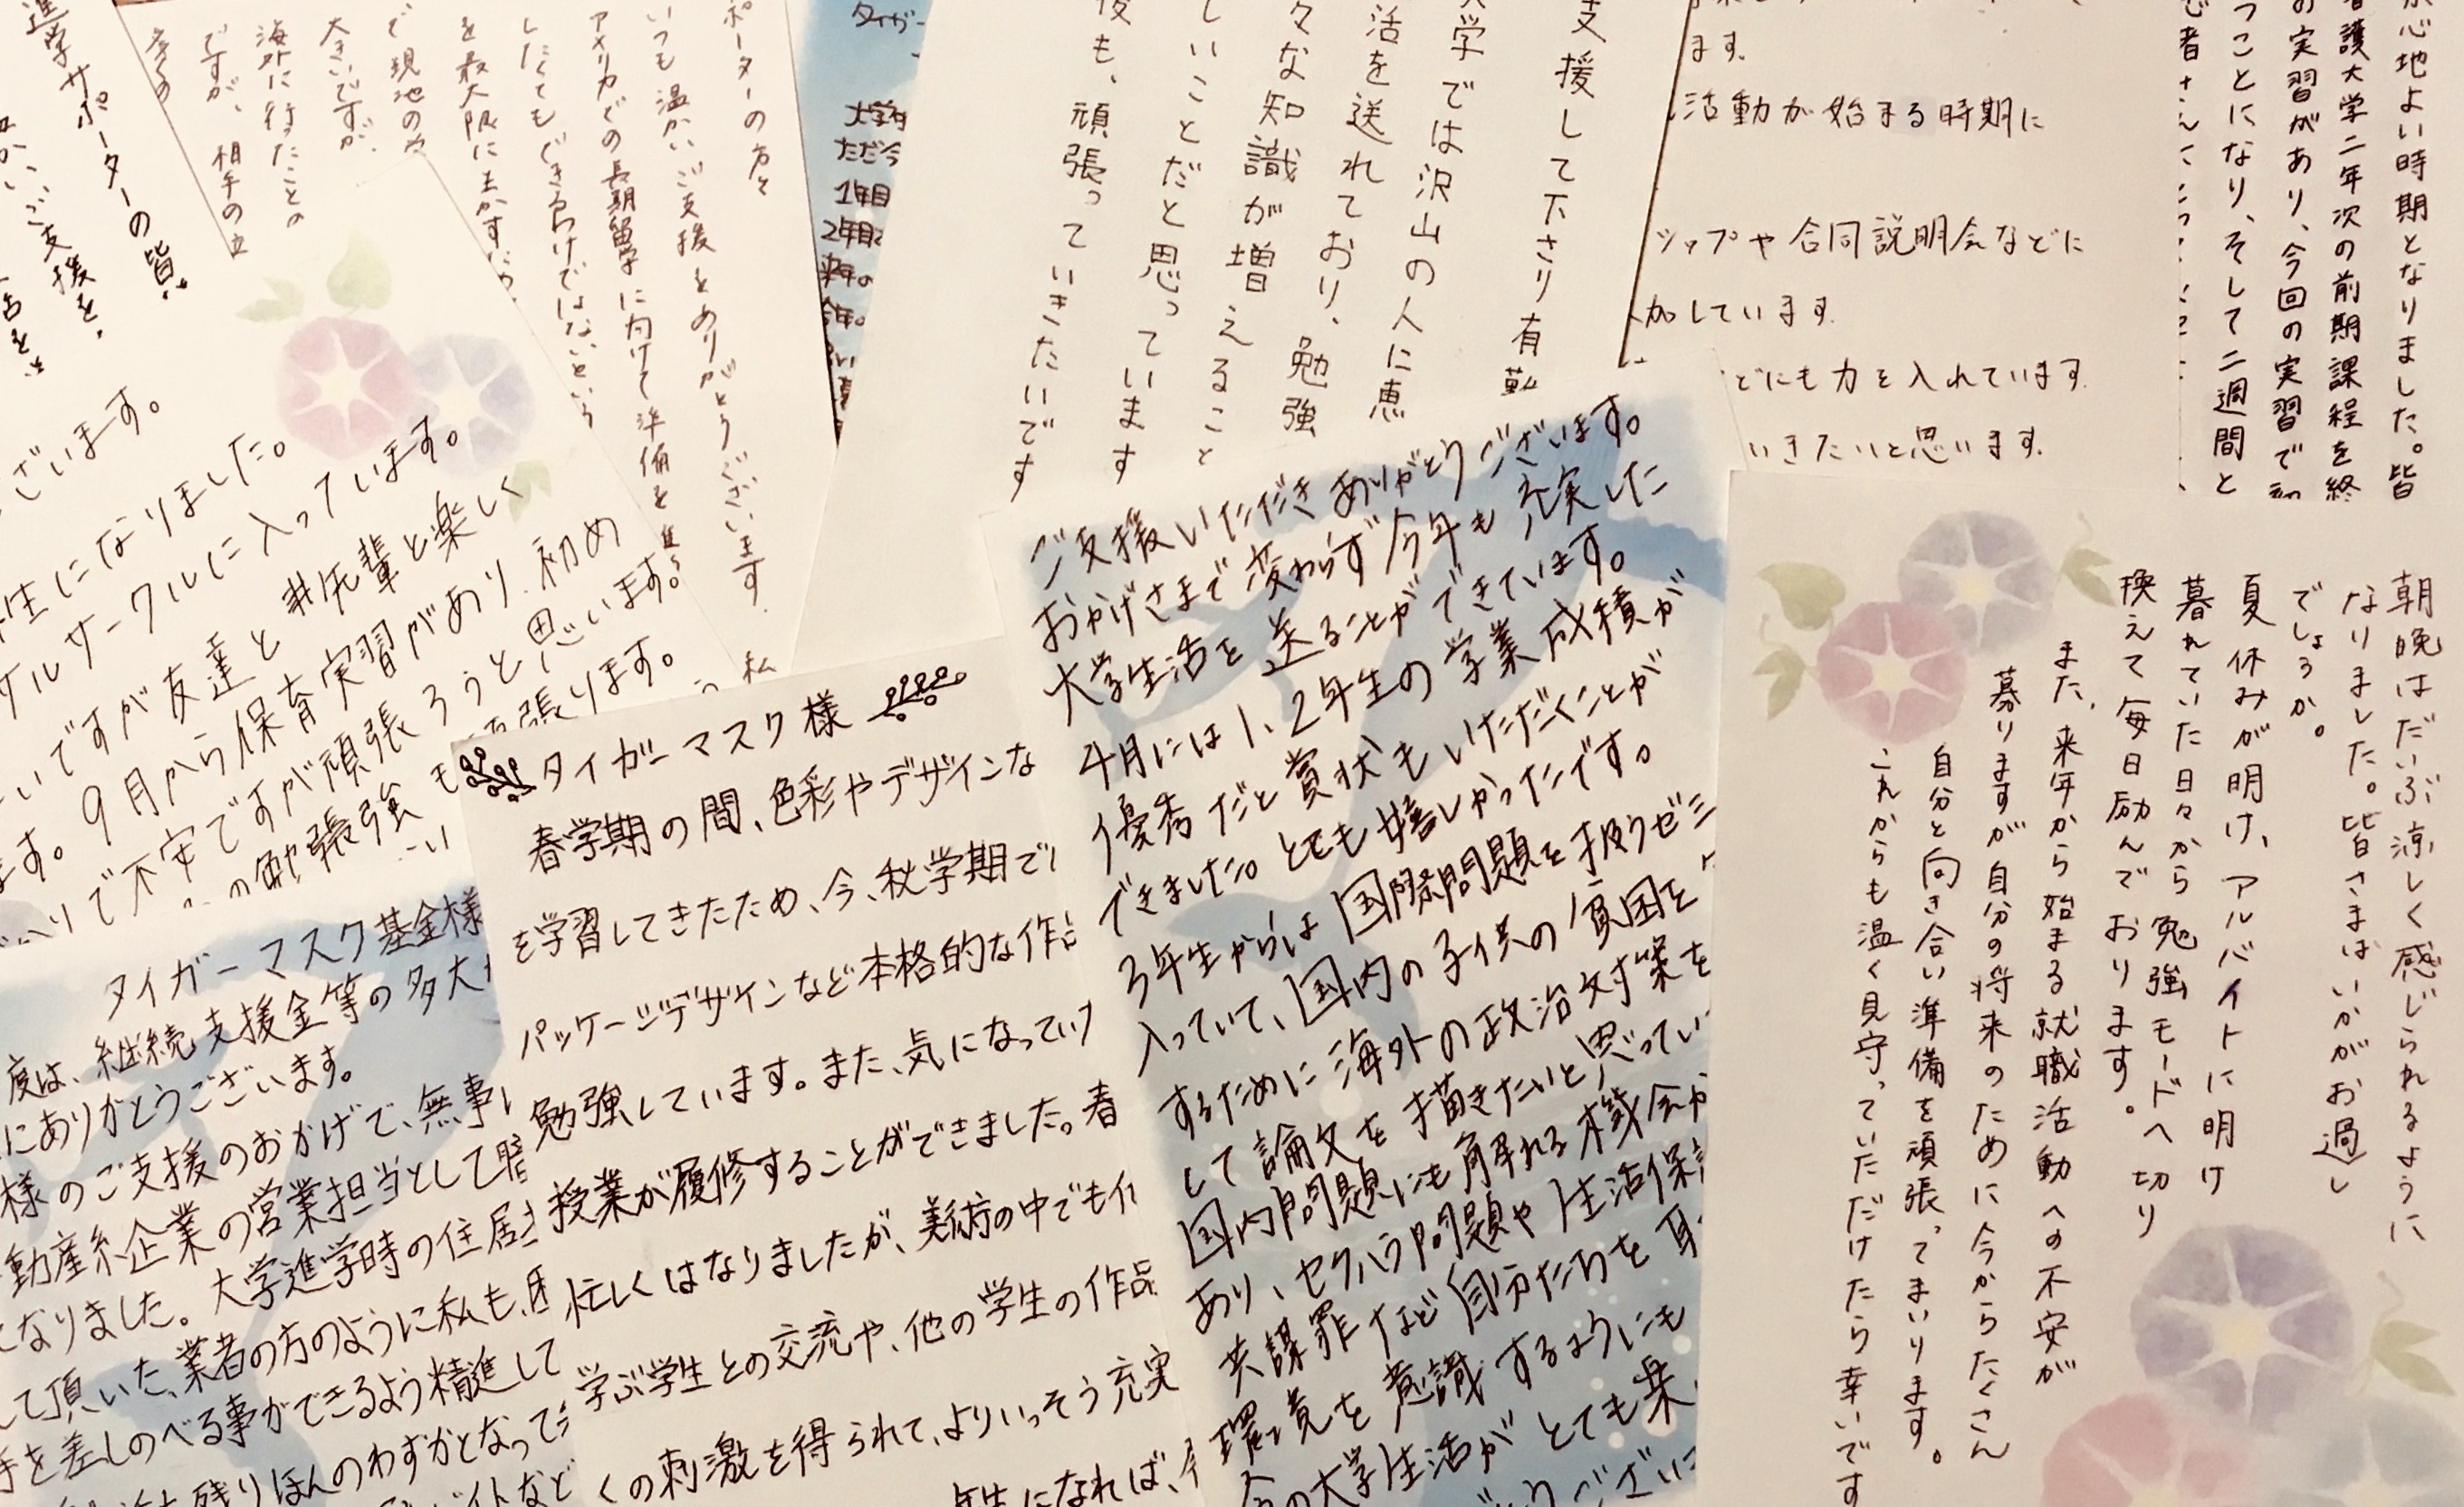 進学サポーターの皆
ご支援を、
ポーターの方々
いつも温かいご支援をありがとうございます。
アメリカでの長期留学に向けて準備を進
したくてもできるわけではないという
を最大限に生かす
で現地の
大きいですが、
海外に行ったことの
ですが、相手の立
私
ございます。
生になりました。
サークルに入っています。
いですが友達と先輩と楽しく
ます。9月から保育実習があり、初め
で不安ですが頑張ろうと思います。
の勉強
頑張ります。
タイガー
大学
ただ今
1年目
2年目
来年の
今年の
支援して下さり有難
大学では沢山の人に恵
活を送れており、勉強
々な知識が増えること
しいことだと思っています
後も、頑張っていきたいです
ます。
活動が始まる時期に
シップや合同説明会などに
加しています。
どにも力を入れています
いきたいと思います。
心地よい時期となりました。皆
看護大学二年次の前期課程を終
の実習があり、今回の実習で初
つことになり、そして二週間と
タイガーマスク基金様
度は、継続支援金等の多大
にありがとうございます。
様のご支援のおかげで、無事
動産系企業の営業担当として
となりました。大学進学時の住居
して頂いた業者の方のように私も、
手を差しのべる事ができるよう精進して
残りほんのわずかとなって
バイトなど
タイガーマスク様
春学期の間、色彩やデザインな
を学習してきたため、今、秋学期で
パッケージデザインなど本格的な作
勉強しています。また、気になってい
授業が履修することができました。春
忙しくはなりましたが、美術の中でも
学ぶ学生との交流や、他の学生の作品
くの刺激を得られて、よりいっそう充実
年生になれば、
ご支援いただきありがとうございます。
おかげさまで変わらず今年も充実した
大学生活を送ることができています。
4月には1、2年生の学業成績が
優秀だと賞状もいただくことが
できました。とても嬉しかったです。
3年生からは国際問題を扱うゼミ
入っていて、国内の子供の貧困を
するために海外の政治対策を
して論文を描きたいと思ってい
国内問題にも触れる機会が
あり、セクハラ問題や生活保
共謀罪など自分たちを
環境を意識するようにも
今の大学生活がとても楽
とうござい
朝晩はだいぶ涼しく感じられるように
なりました。皆さまはいかがお過し
でしょうか。
夏休みが明け、アルバイトに明け
暮れていた日々から勉強モードへ切り
換えて毎日励んでおります。
また、来年から始まる就職活動への不安が
募りますが自分の将来のために今からたくさん
自分と向き合い準備を頑張ってまいります。
これからも温く見守っていただけたら幸いです